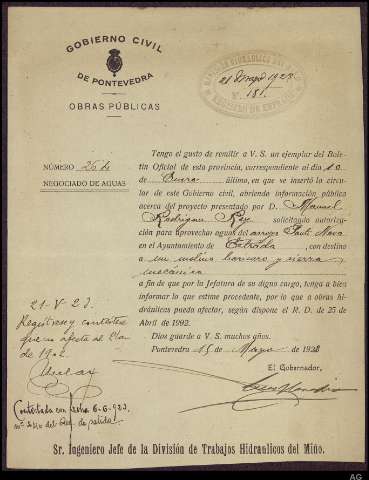 GOBIERNO CIVIL
DE PONTEVEDRA
OBRAS PÚBLICAS
21 de mayo 1928
181
NÚMERO
NEGOCIADO DE AGUAS
Tengo el gusto de remitir a V. S. un ejemplar del Bole-
tín Oficial de esta provincia, correspondiente al día 10
de Enero último, en que se insertó la circu-
lar de este Gobierno civil, abriendo información pública
acerca del proyecto presentado por D. Manuel
Rodríguez Rey solicitando autoriza-
ción para aprovechar aguas del arroyo
en el Ayuntamiento de Estrada, con destino
a un molino harinero y sierra
mecánica
a fin de que por la Jefatura de su digno cargo, tenga a bien
informar lo que estime procedente, por lo que a obras hi-
dráulicas pueda afectar, según dispone el R. D. de 25 de
Abril de 1902.
Dios guarde a V. S. muchos años.
Pontevedra 15 de Mayo 1928
El Gobernador,
Regístrese y contéstese
que no afecta al Plan
de 1902.
Contestada con fecha 6-6-923
Sr. Ingeniero Jefe de la División de Trabajos Hidraulicos del Miño.
AG